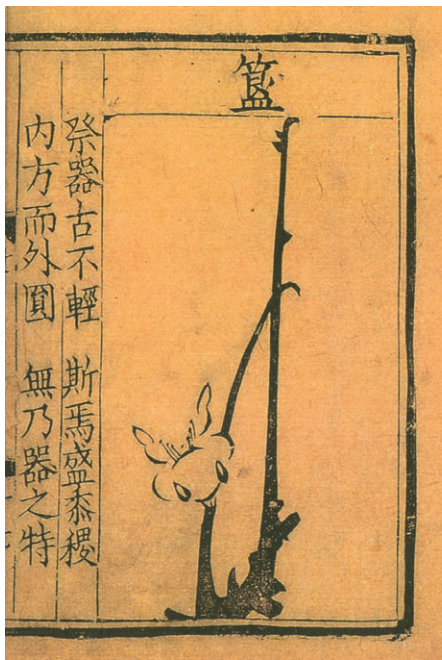 簋
祭器古不輕　斯焉盛黍稷
内方而外圓　無乃器之特